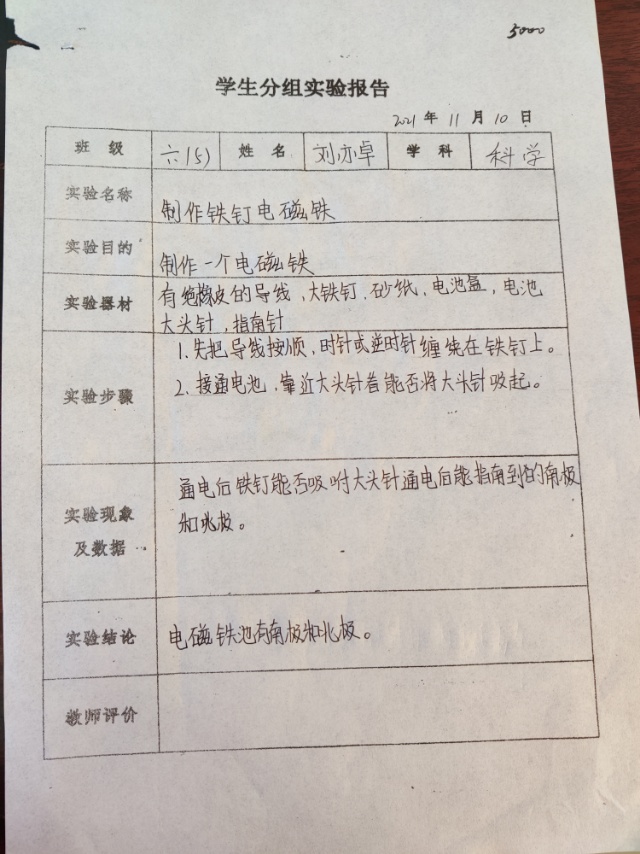 5000
学生分组实验报告
2021年11月10日
班 级 六(5) 姓 名 刘亦卓 学 科 科学
实验名称 制作铁钉电磁铁
实验目的 制作一个电磁铁
实验器材 有绝橡皮的导线,大铁钉,砂纸,电池盒,电池
大头针,指南针
实验步骤
1.先把导线按顺,时针或逆时针缠绕在铁钉上。
2.接通电池,靠近大头针看能否将大头针吸起。
实验现象
及数据
通电后铁钉能否吸附大头针通电后能指南到的南极
和北极。
实验结论 电磁铁池有南极和北极。
教师评价